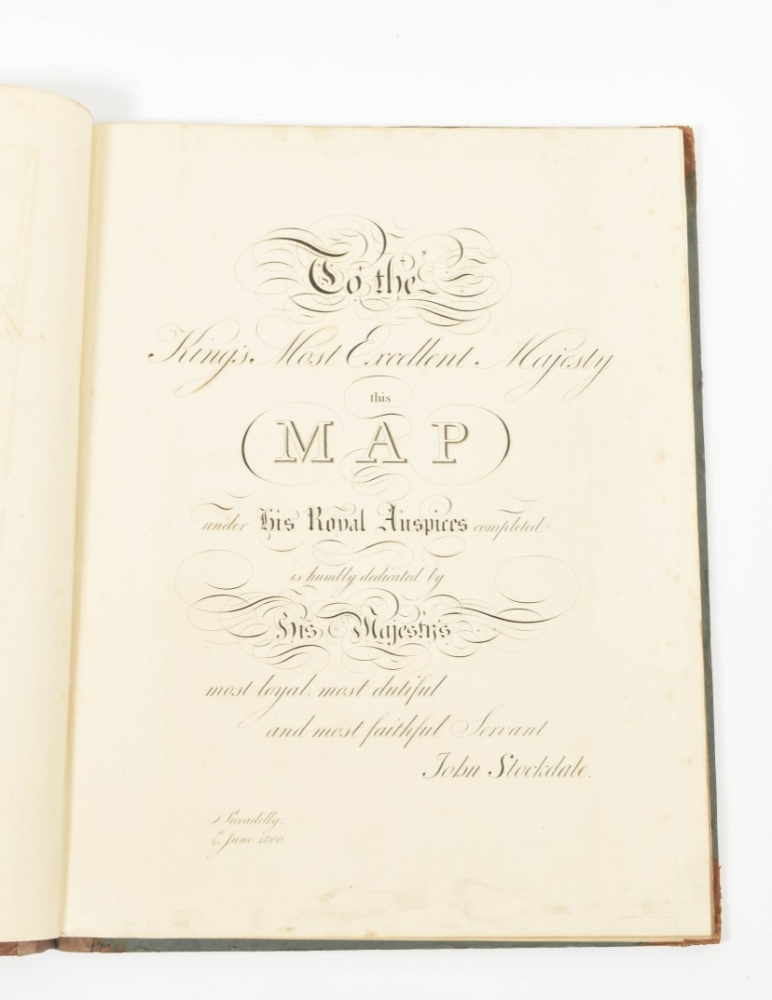 To the
King's Most Excellent Majesty
this
MAP
under His Royal Auspices completed
is humbly dedicated by
His Majesty's
most loyal, most dutiful
and most faithful Servant
John Stockdale.
Piccadilly,
4th June 1800.